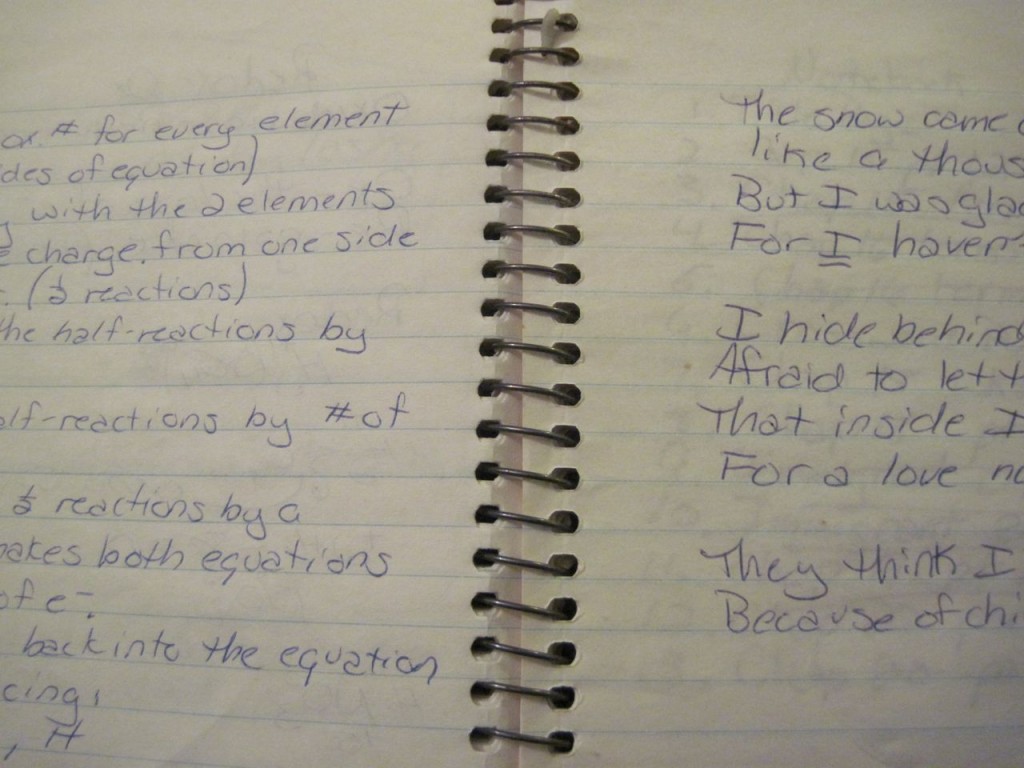 ox. # for every element
ides of equation)
with the 2 elements
e change from one side
. (½ reactions)
the half-reactions by
alf-reactions by # of
½ reactions by a
makes both equations
of e-.
back into the equation
cing,
, H
The snow came
like a thous
But I was glad
For I haven't
I hide behind
Afraid to let t
That inside I
For a love no
They think I
Because of chi